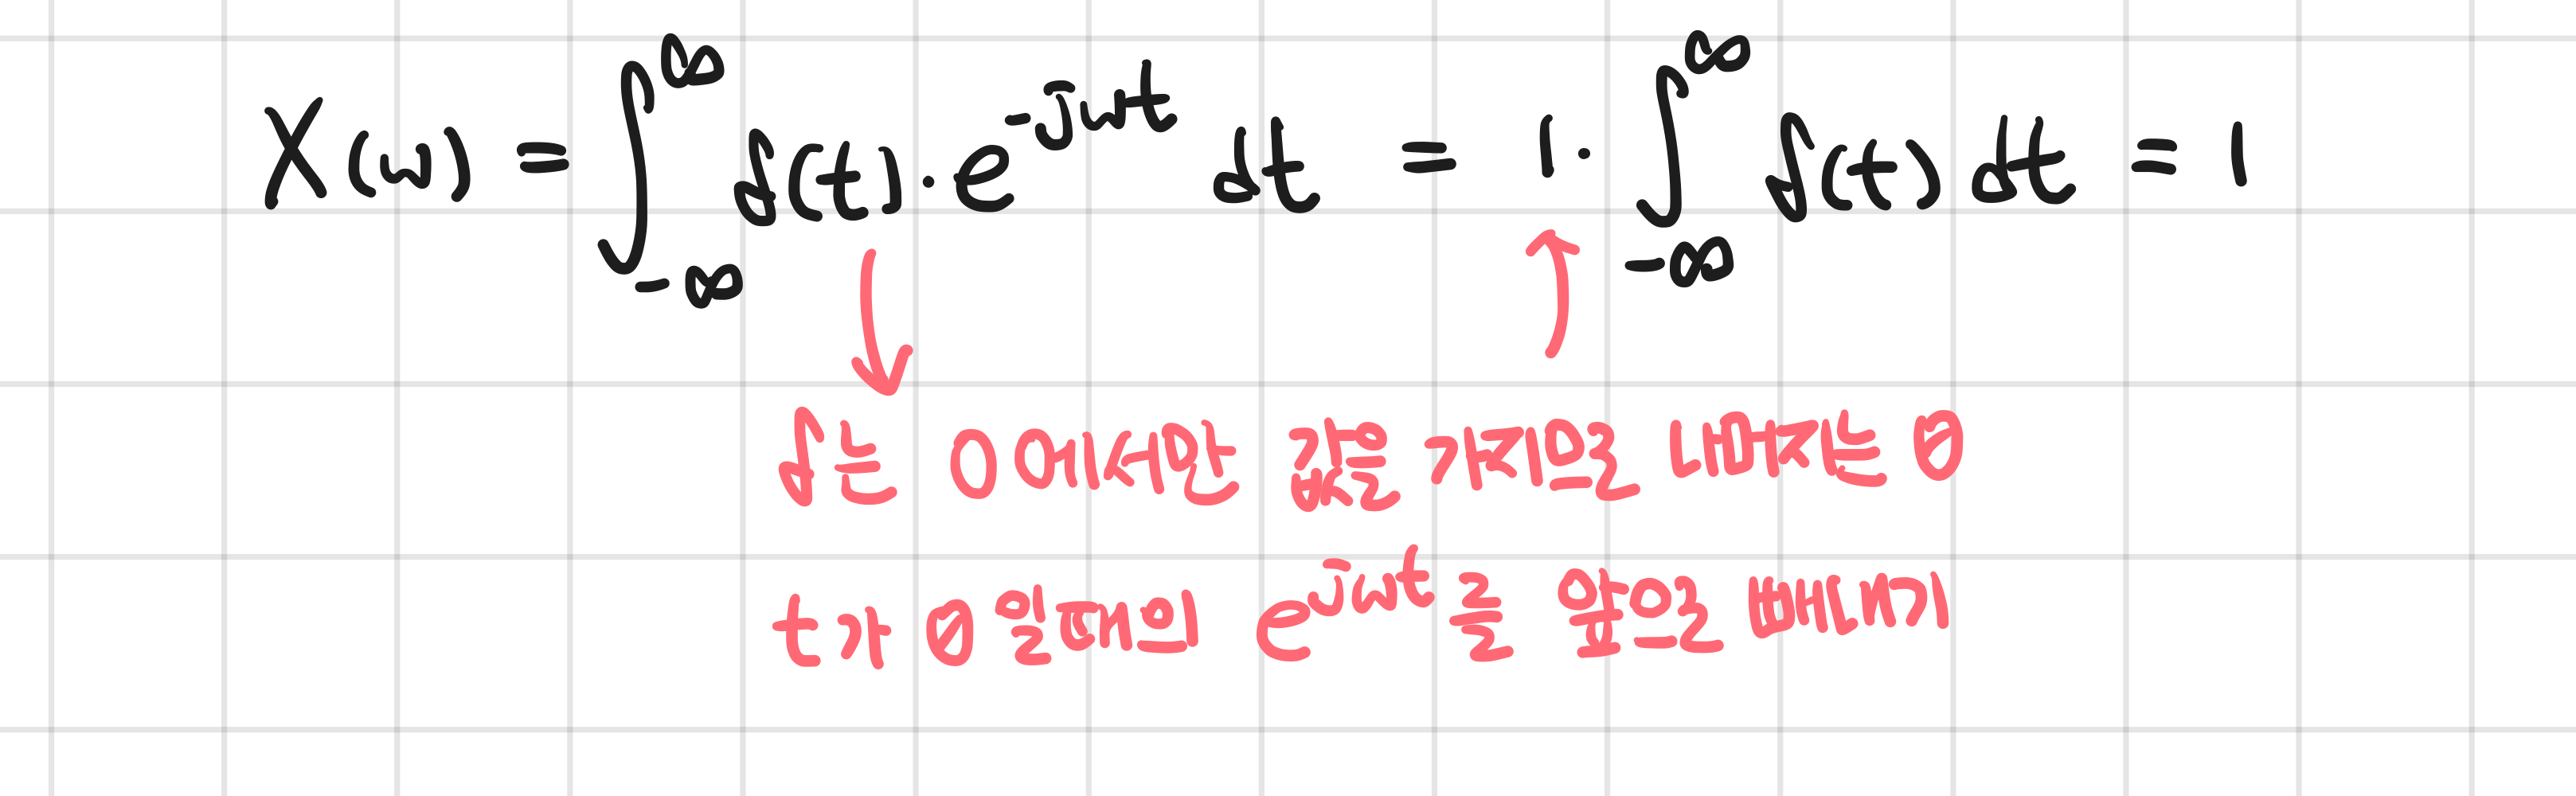 X(ω) = ∫_{-∞}^{∞} δ(t)·e^{-jωt} dt = 1·∫_{-∞}^{∞} δ(t) dt = 1
δ는 0에서만 값을 가지므로 나머지는 0
t가 0일때의 e^{jωt}를 앞으로 빼내기